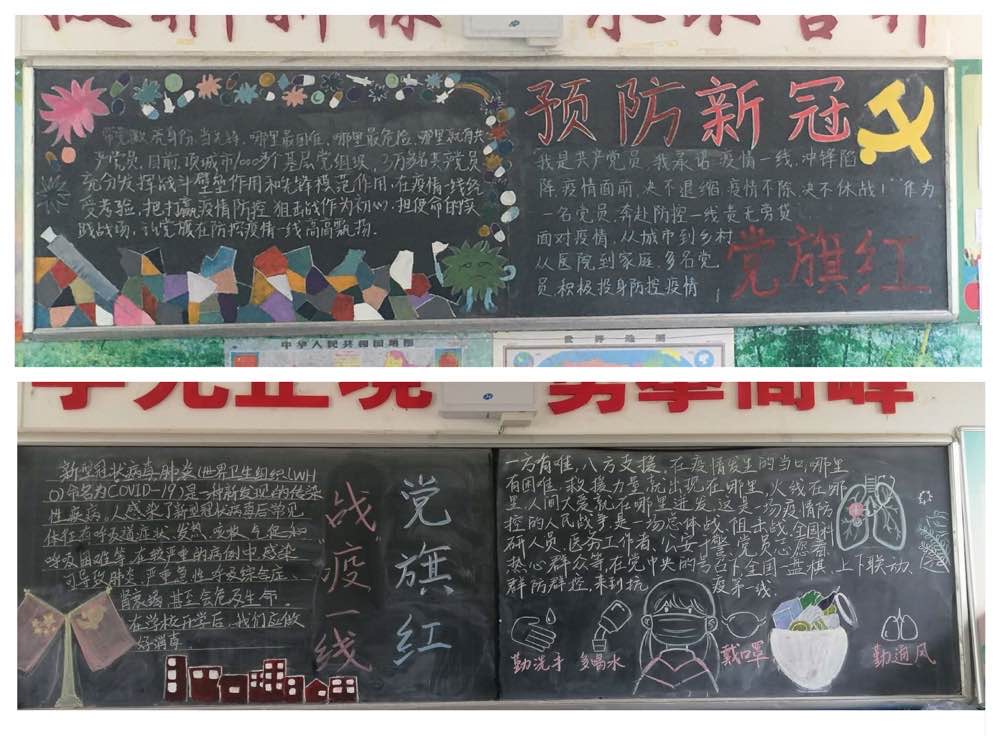 带党徽、亮身份、当先锋，哪里最困难、哪里最危险、哪里就有共
产党员，目前，项城市1000多个基层党组织，3万多名共产党员
充分发挥战斗堡垒作用和先锋模范作用，在疫情一线经
受考验，把打赢疫情防控狙击战作为初心，担使命的实
践战场，让党旗在防控疫情一线高高飘扬。
预防新冠
我是共产党员，我承诺 疫情一线，冲锋陷
阵，疫情面前，决不退缩 疫情不除，决不休战！"作为
一名党员，奔赴防控一线责无旁贷
面对疫情，从城市到乡村
从医院到家庭，多名党
员，积极投身防控疫情
党旗红
中华人民共和国地图
世界地图
新型冠状病毒肺炎(世界卫生组织(WH
O)命名为COVID-19)是一种新发现的传染
性疾病。人感染了新型冠状病毒后常见
体征有呼吸道症状、发热、咳嗽、气促和
呼吸困难等，在较严重的病例中，感染
可导致肺炎、严重急性呼吸综合症、
肾衰竭，甚至会危及生命。
在学校开学后，我们应做
好消毒。
"战疫一线
党旗红"
一方有难，八方支援，在疫情发生的当口，哪里
有困难，救援力量就出现在哪里，火线在哪
里，人间大爱就在哪里迸发，这是一场疫情防
控的人民战争，是一场总体战、阻击战，全国科
研人员、医务工作者、公安干警、党员志愿者、
热心群众等，在党中央的号召下，全国一盘棋，上下联动、
群防群控，来到抗 疫第一线。
勤洗手
多喝水
戴口罩
勤通风